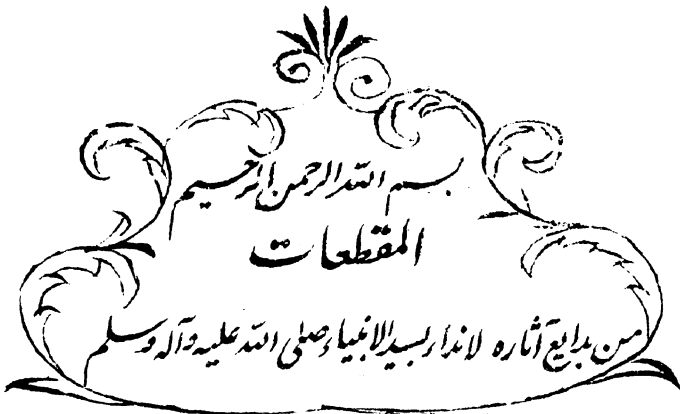 بسم الله الرحمن الرحیم
المقطعات
من بدایع آثاره لانذار بسید الانبیاء صلی الله علیه وآله وسلم